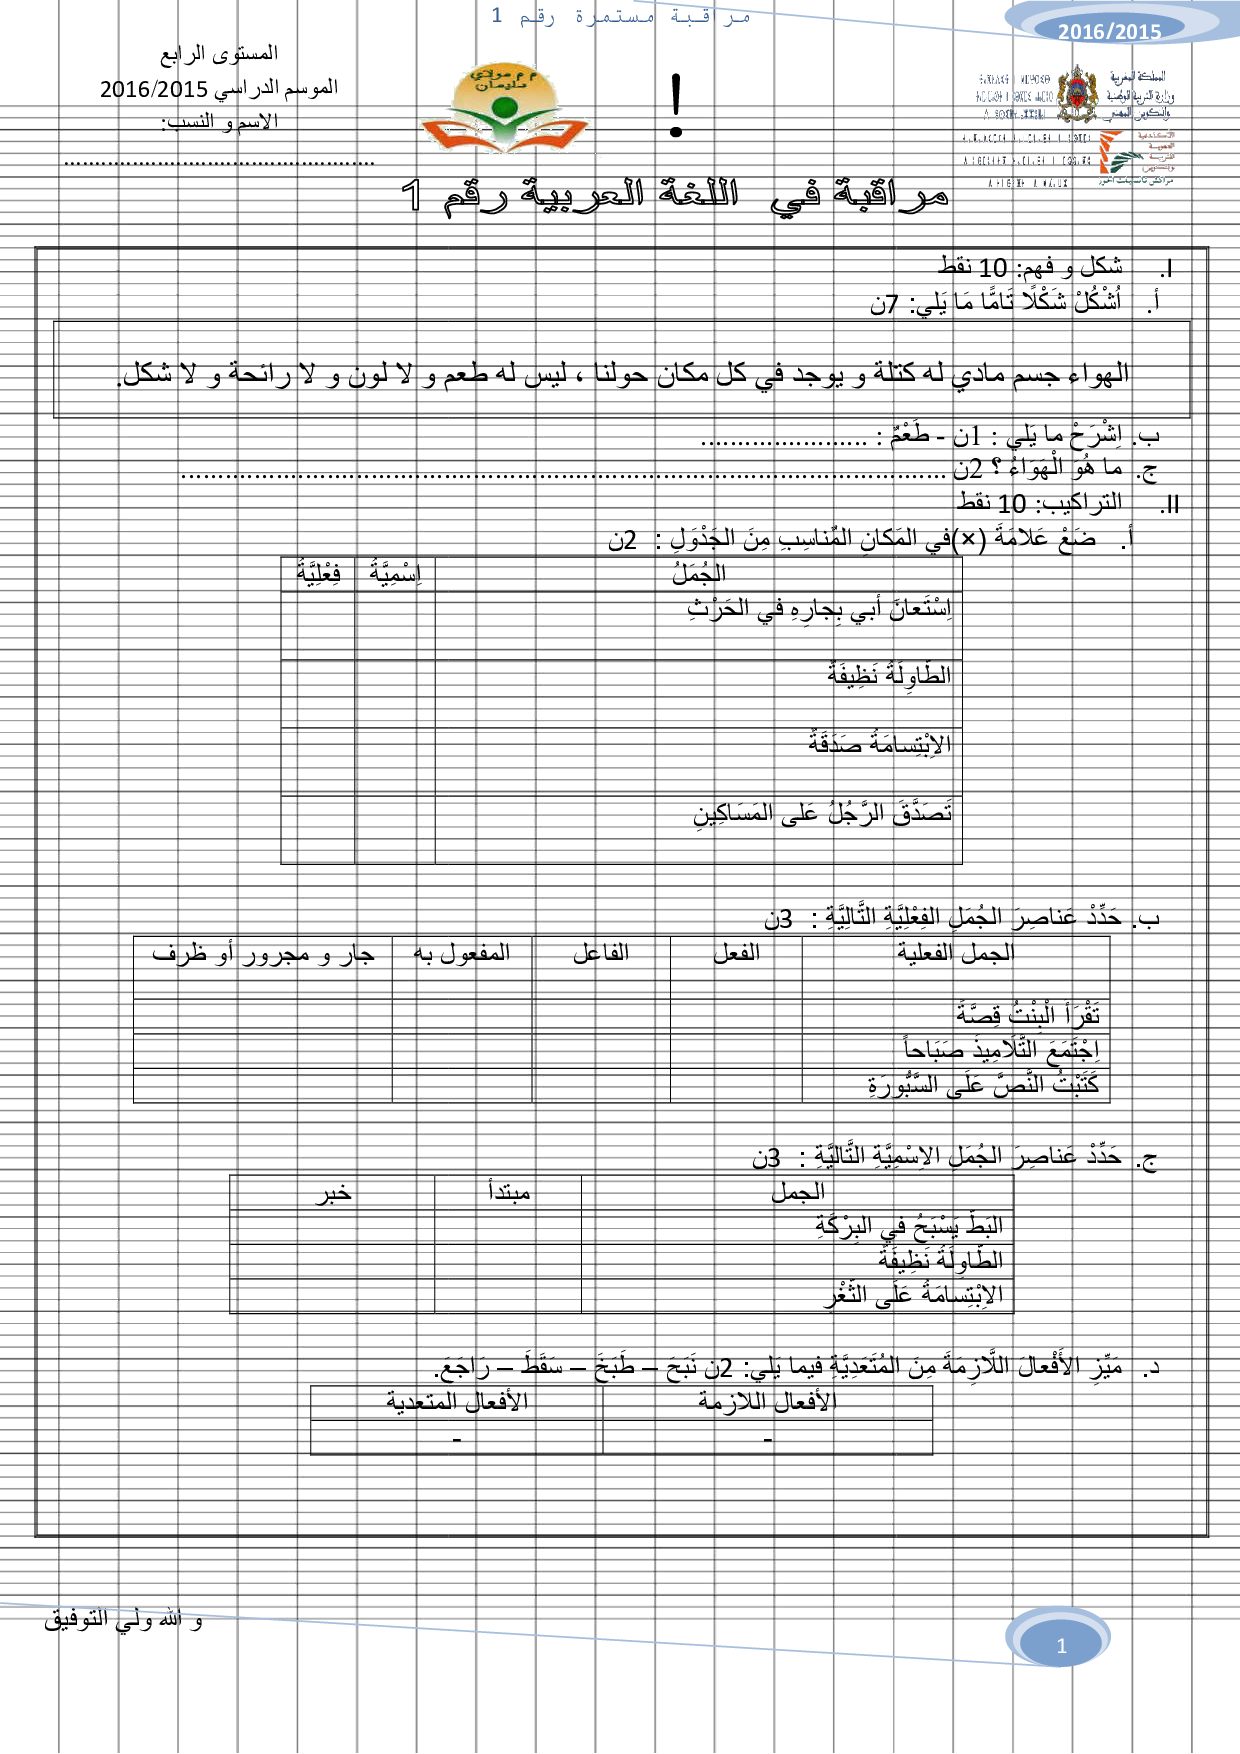 مراقبة مستمرة رقم 1
2016/2015
المستوى الرابع
الموسم الدراسي 2016/2015
الاسم و النسب:
......................................................
م م مولاي
سليمان
!
المملكة المغربية
وزارة التربية الوطنية
والتكوين المهني
مراقبة في اللغة العربية رقم 1
I. شكل و فهم: 10 نقط
أ. اُشْكُلْ شَكْلًا تَامًّا مَا يَلي: 7ن
الهواء جسم مادي له كتلة و يوجد في كل مكان حولنا ، ليس له طعم و لا لون و لا رائحة و لا شكل.
ب. اِشْرَحْ ما يَلي : 1ن - طَعْمٌ : .......................
ج. ما هُوَ الْهَوَاءُ ؟ 2ن ........................................................................................................
II. التراكيب: 10 نقط
أ. ضَعْ عَلامَةَ (×)في المَكانِ المٌناسِبِ مِنَ الجَدْوَلِ : 2ن
الجُمَلُ اِسْمِيَّةُ فِعْلِيَّةُ
اِسْتَعانَ أبي بِجارِهِ في الحَرْثِ
الطّاوِلَةُ نَظِيفَةٌ
الاِبْتِسامَةُ صَدَقَةٌ
تَصَدَّقَ الرَّجُلُ عَلى المَسَاكِينِ
ب. حَدِّدْ عَناصِرَ الجُمَلِ الفِعْلِيَّةِ التَّالِيَّةِ : 3ن
الجمل الفعلية الفعل الفاعل المفعول به جار و مجرور أو ظرف
تَقْرَأ الْبِنْتُ قِصَّةَ
اِجْتَمَعَ التَّلَامِيذَ صَبَاحاً
كَتَبْتُ النَّصَّ عَلَى السَّبُّورَةِ
ج. حَدِّدْ عَناصِرَ الجُمَلِ الاِسْمِيَّةِ التَّالِيَّةِ : 3ن
الجمل مبتدأ خبر
البَطّ يَسْبَحُ في البِرْكَةِ
الطّاوِلَةُ نَظِيفَةٌ
الاِبْتِسامَةُ عَلَى الثّغْرِ
د. مَيِّزِ الأَفْعالَ اللَّازِمَةَ مِنَ المُتَعَدِيَّةِ فيما يَلي: 2ن نَبَحَ – طَبَخَ – سَقَطَ – رَاجَعَ.
الأفعال اللازمة الأفعال المتعدية
- -
و الله ولي التوفيق
1